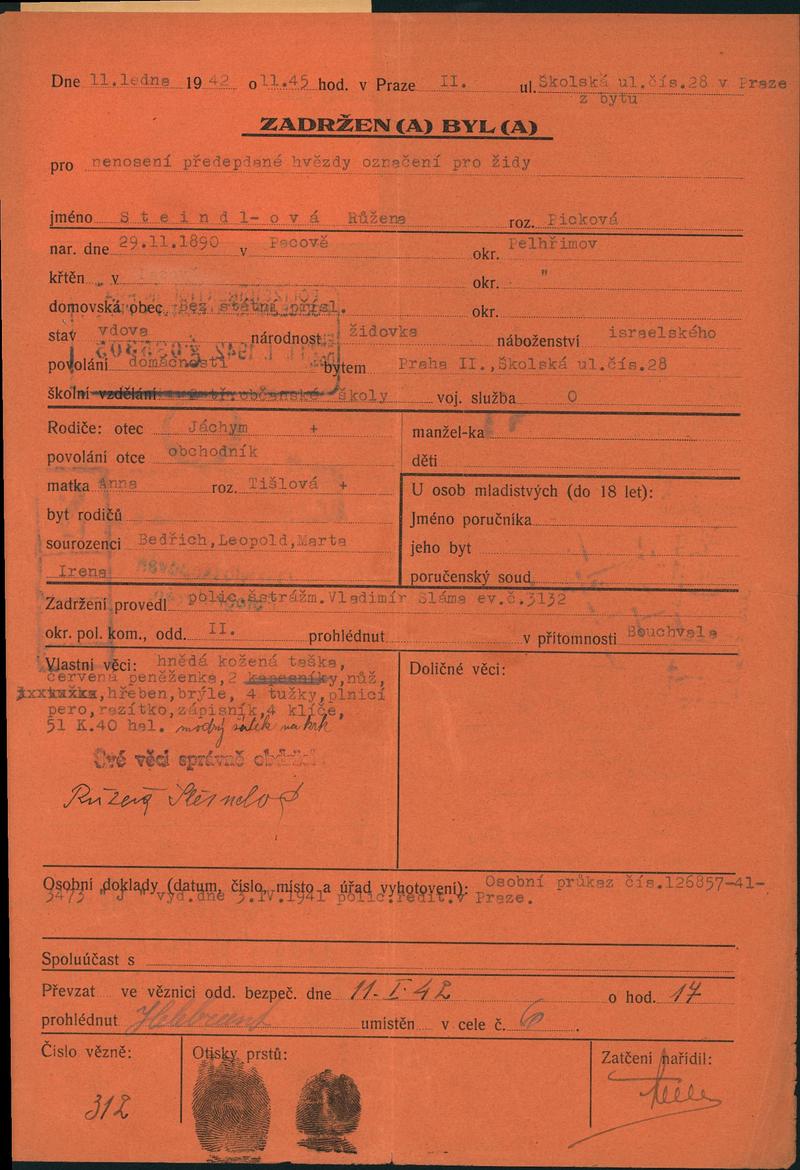 Dne 11.ledna 1942 o 11.45 hod. v Praze II. ul. Školská ul.čís.28 v Praze
z bytu
ZADRŽEN(A) BYL(A)
pro nenosení předepdané hvězdy označení pro židy
jméno Steindl-ová Růžena roz. Picková
nar. dne 29.11.1890 v Pacově okr. Pelhřimov
křtěn „ v okr. "
domovská obec bez státní přísl. okr.
stav vdova národnost židovka náboženství israelského
povolání domácnosti bytem Praha II.,Školská ul.čís.28
školní vzdělání občanské školy voj. služba 0
Rodiče: otec Jáchym + manžel-ka
povolání otce obchodník děti
matka Anna roz. Tišlová +
U osob mladistvých (do 18 let):
byt rodičů Jméno poručníka
sourozenci Bedřich,Leopold,Marta jeho byt
Irena poručenský soud
Zadržení provedl polic.strážm.Vladimír Sláma ev.č.3132
okr. pol. kom., odd. II. prohlédnut v přítomnosti Bouchvala
Vlastní věci: hnědá kožená taška, Doličné věci:
červená peněženka,2 kapesníky,nůž,
hřeben,brýle, 4 tužky,plnicí
pero,razítko,zápisník,4 klíče,
51 K.40 hal. modrý šálek na krk
Své věci správně
Osobní doklady (datum, číslo, místo a úřad vyhotovení): Osobní průkaz čís.126857-41-
3473 "J" vyd.dne 3.IV.1941 polic.ředit.v Praze.
Spoluúčast s
Převzat ve věznici odd. bezpeč. dne 11. I. 42 o hod. 17
prohlédnut umístěn v cele č. 6.
Číslo vězně: Otisky prstů: Zatčení nařídil:
312